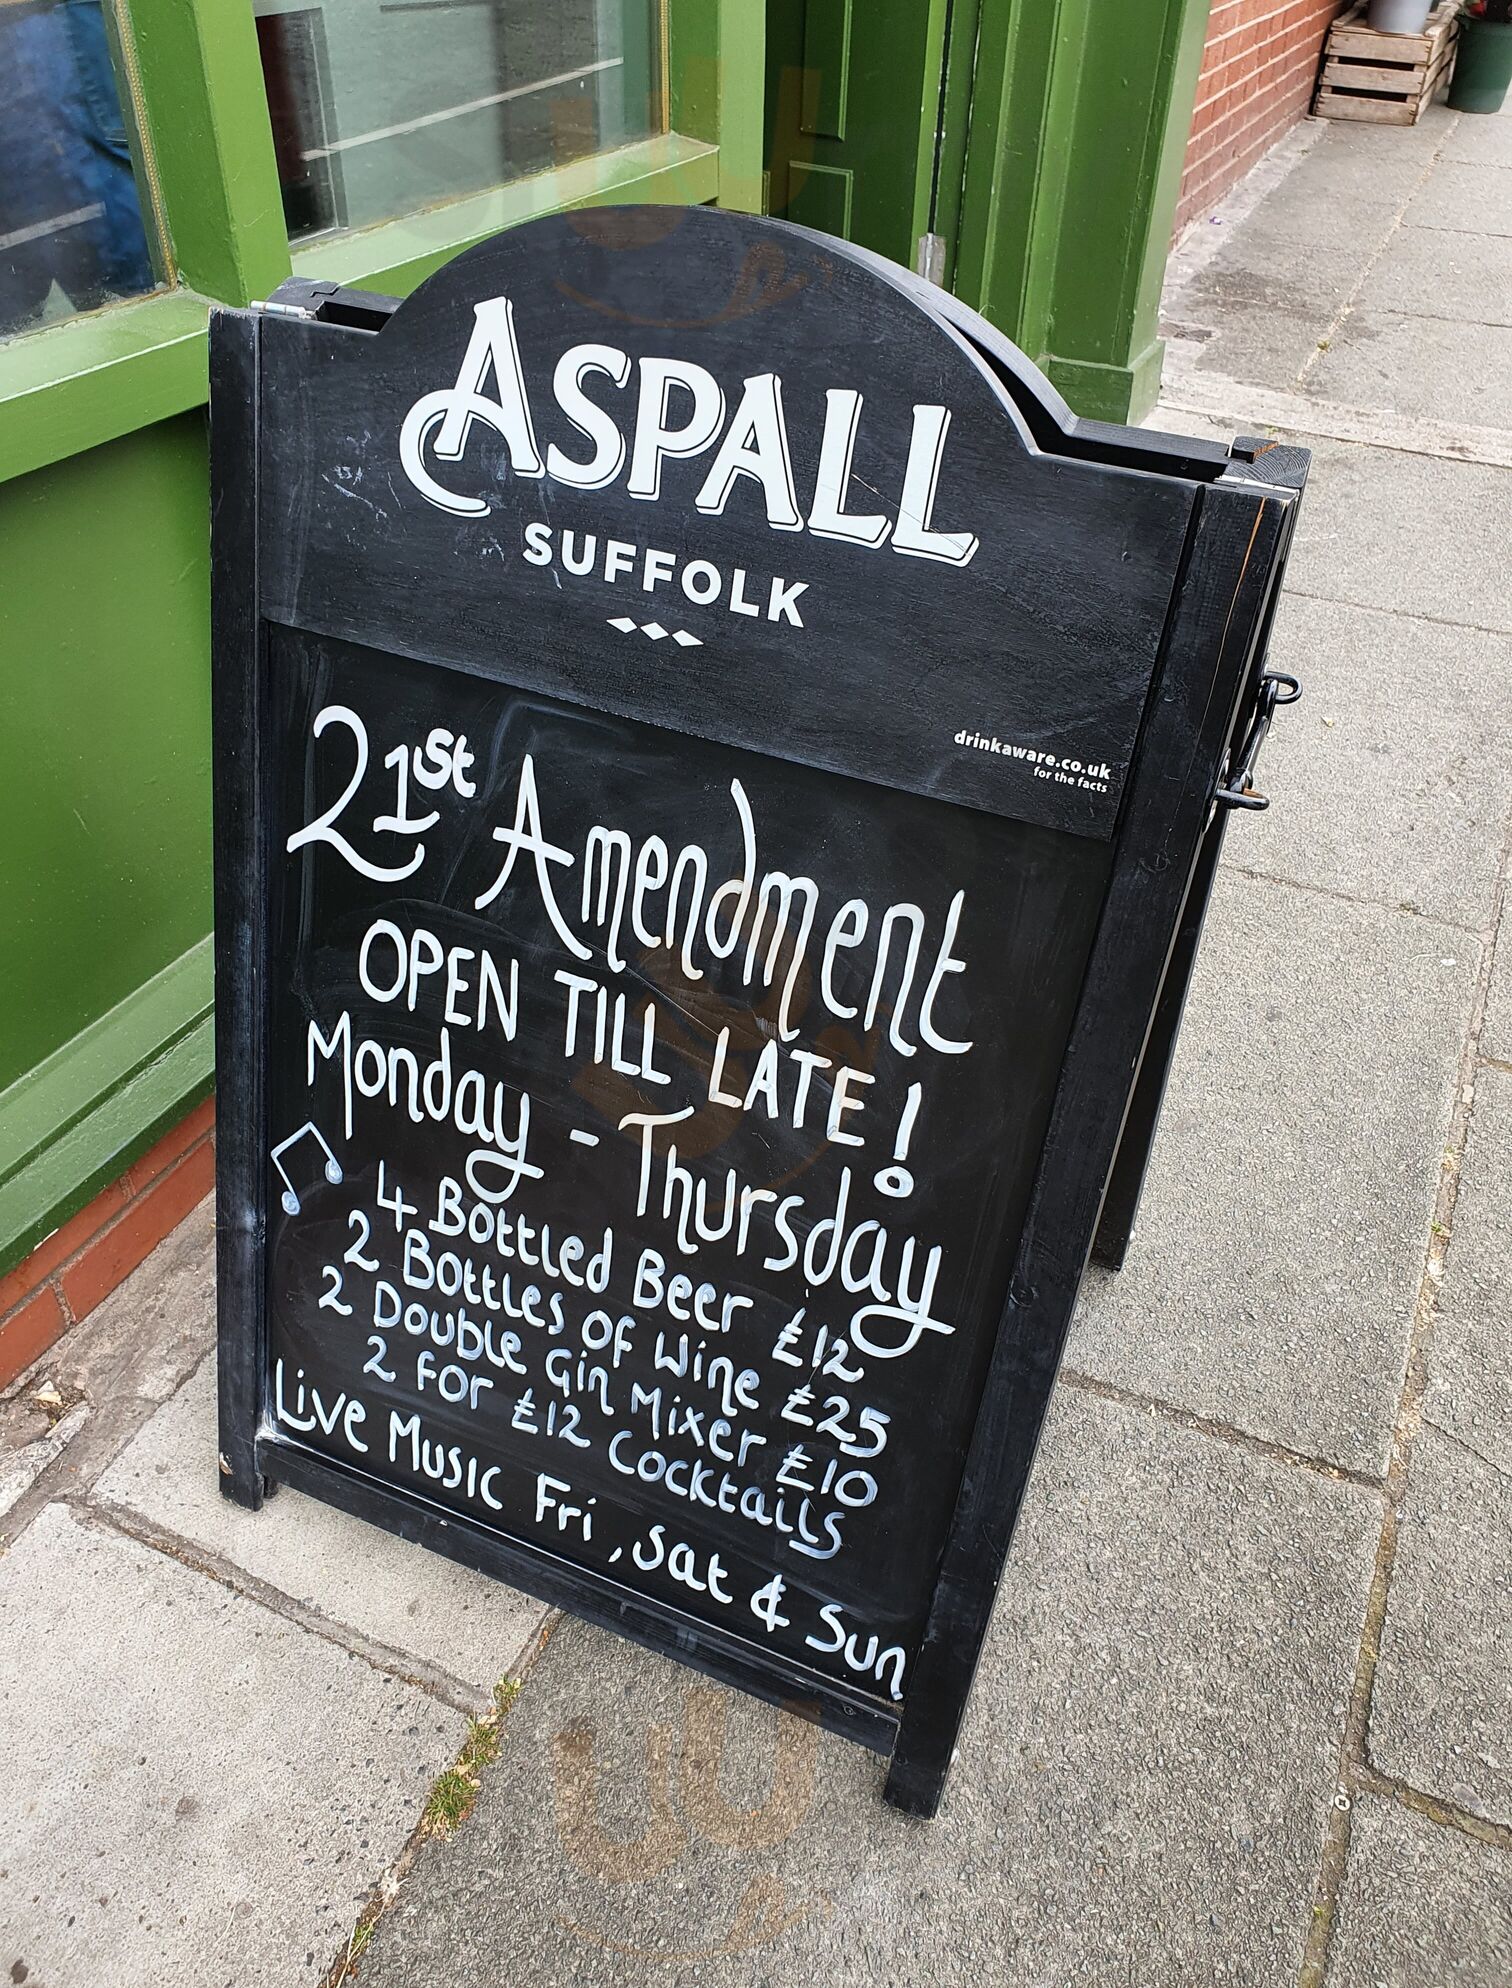 ASPALL
SUFFOLK
drinkaware.co.uk
for the facts
21st Amendment
OPEN TILL LATE!
Monday - Thursday
4 Bottled Beer £12
2 Bottles of Wine £25
2 Double Gin Mixer £10
2 for £12 Cocktails
Live Music Fri, Sat & Sun